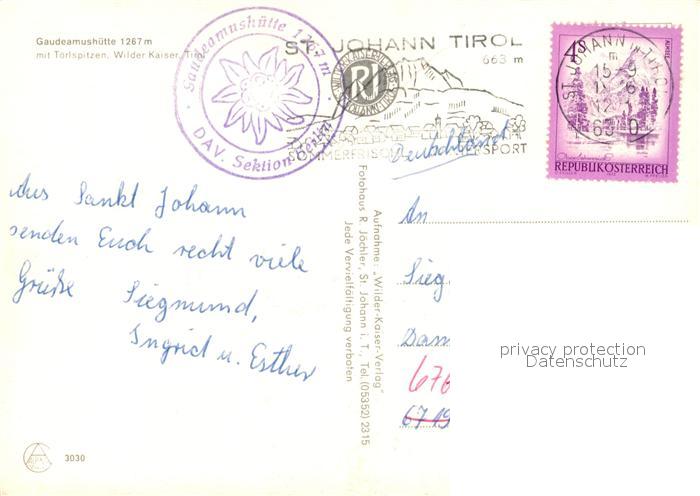 Gaudeamushütte 1267 m
mit Törlspitzen, Wilder Kaiser, Tirol
Gaudeamushütte 1267 m
DAV. Sektion Berlin
ST. JOHANN TIROL
663 m
SOMMERFRISCHE SPORT
ST. JOHANN in TIROL
REPUBLIK ÖSTERREICH
Deutschland
Aus Sankt Johann
senden Euch recht viele
Grüße Siegmund,
Ingrid u. Esther
Aufnahme: „Wilder-Kaiser-Verlag"
Fotohaus R. Jöchler, St. Johann i. T., Tel. (05352) 2315
Jede Vervielfältigung verboten
An
Sieg
Dam
676
6719
privacy protection
Datenschutz
3030